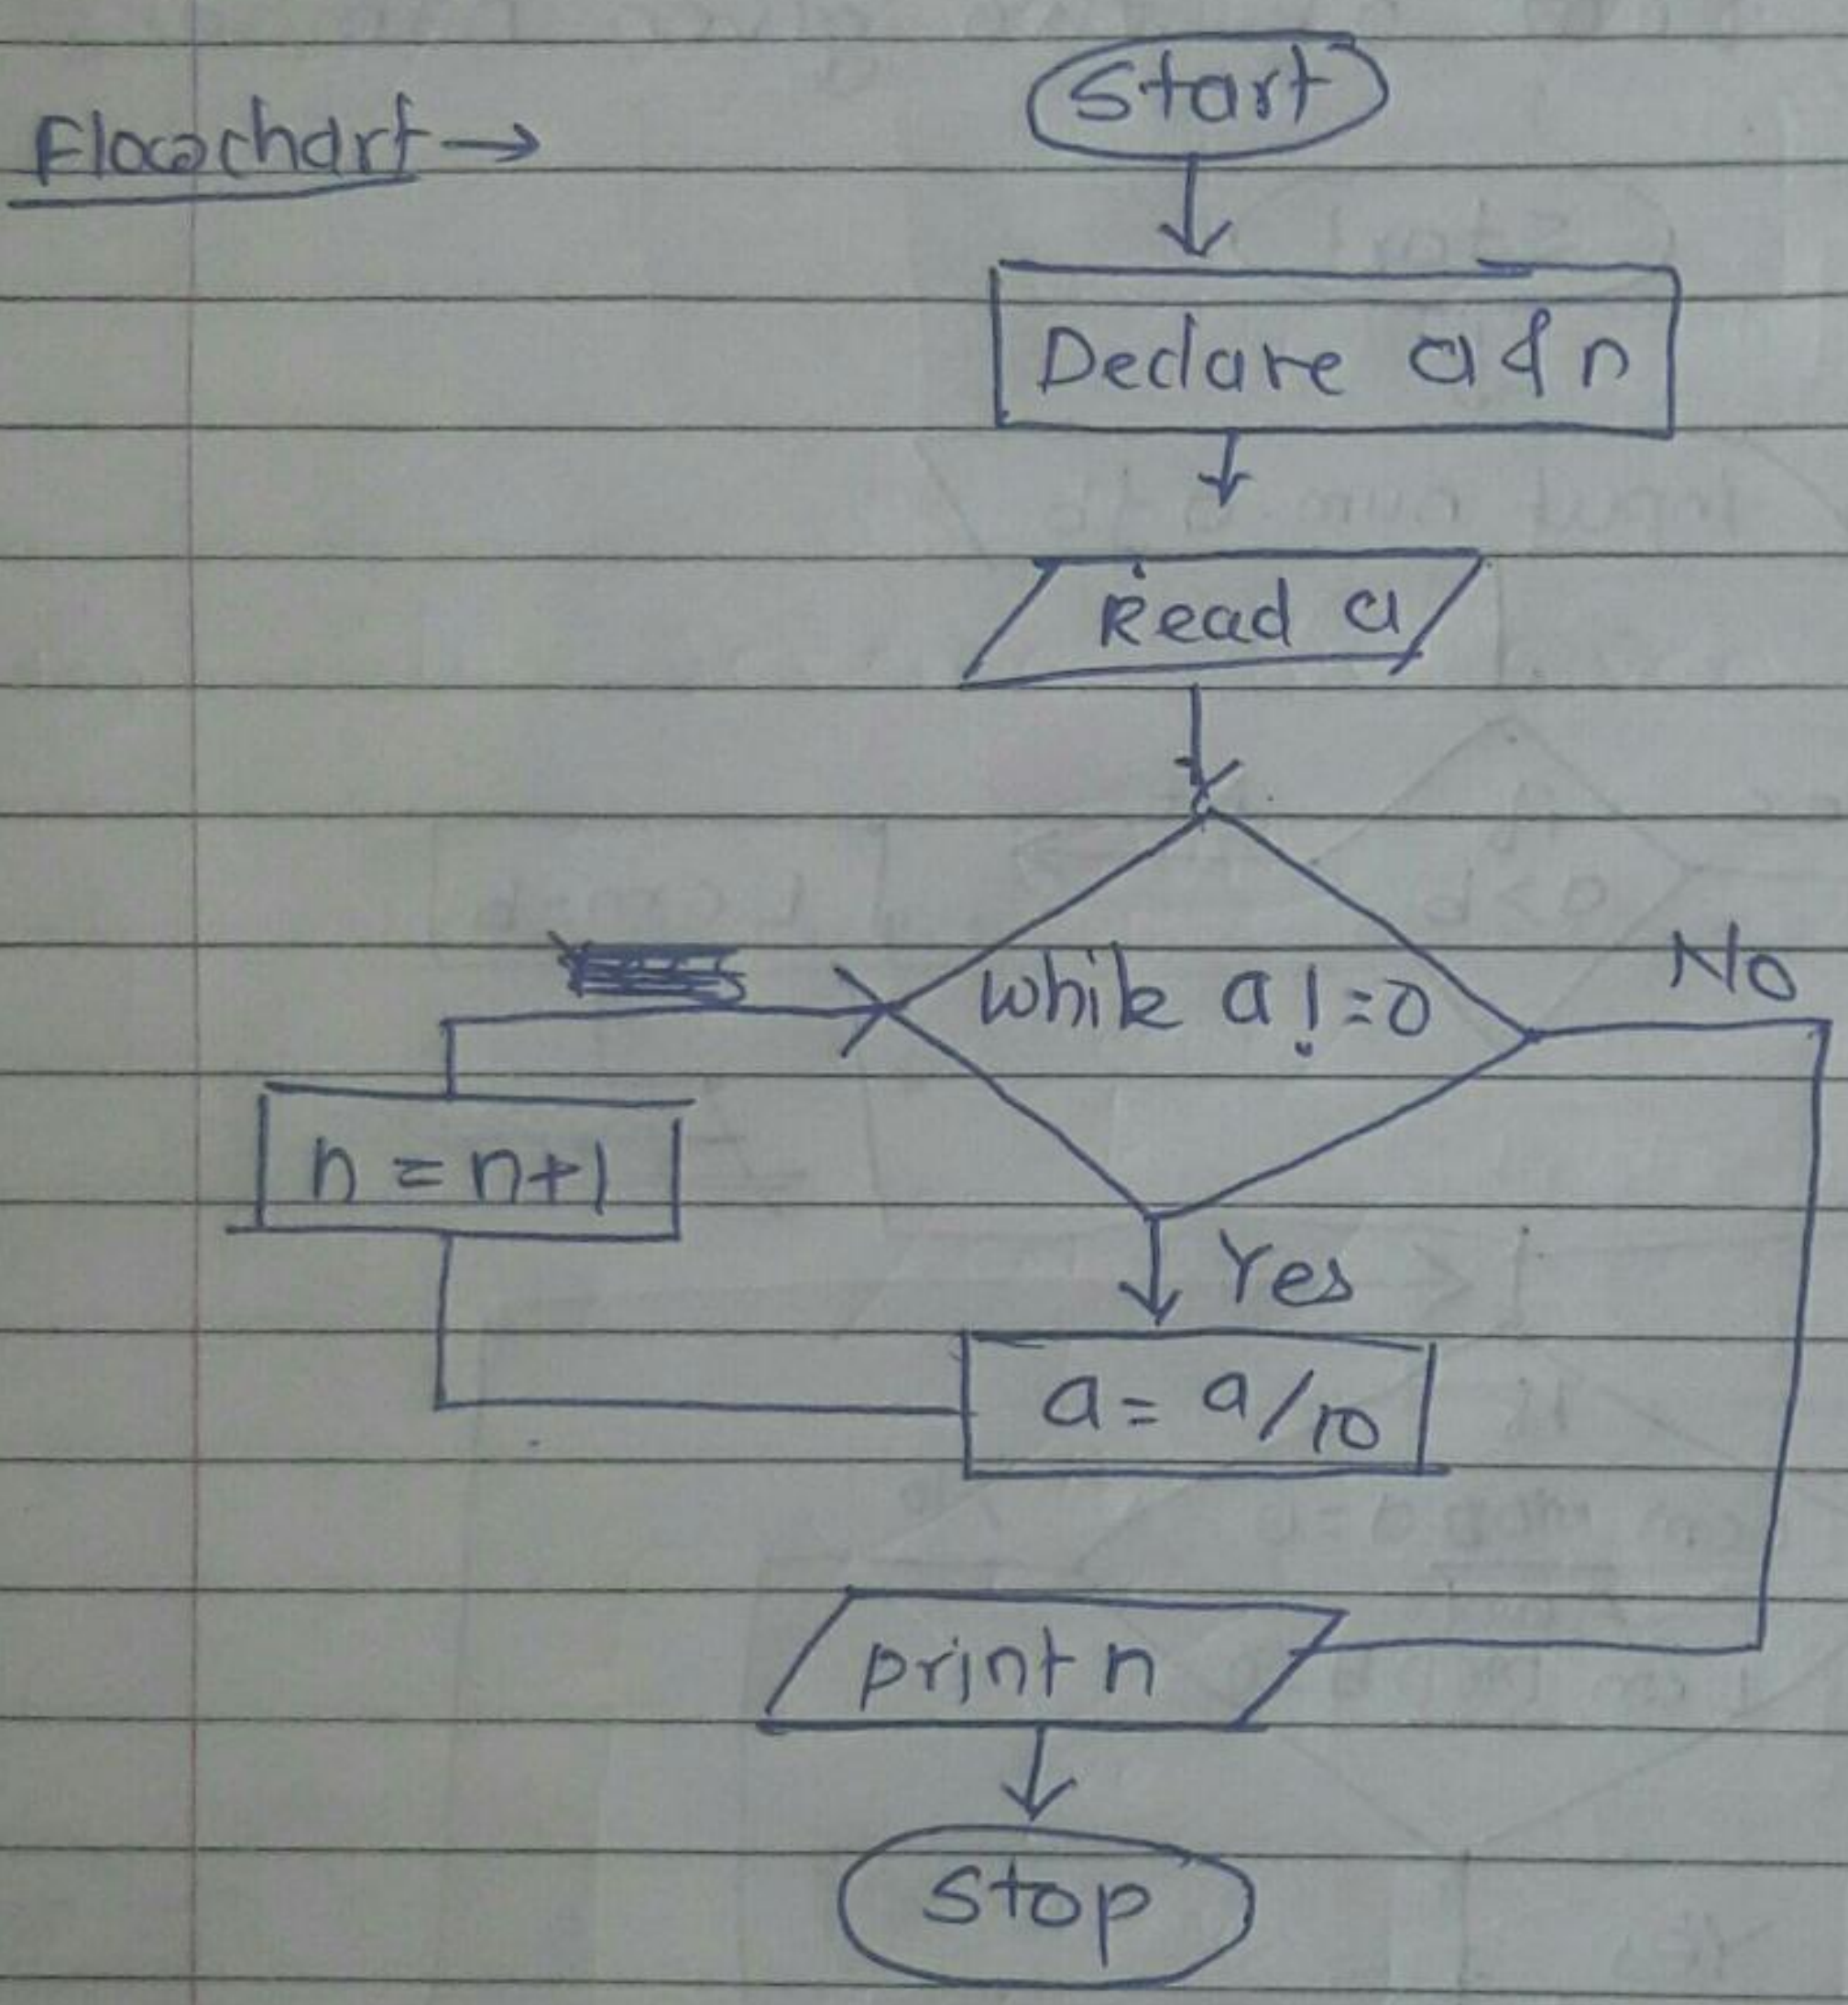 Flowchart →
Start
Declare a & n
Read a
while a != 0
No
n = n+1
Yes
a = a/10
print n
Stop